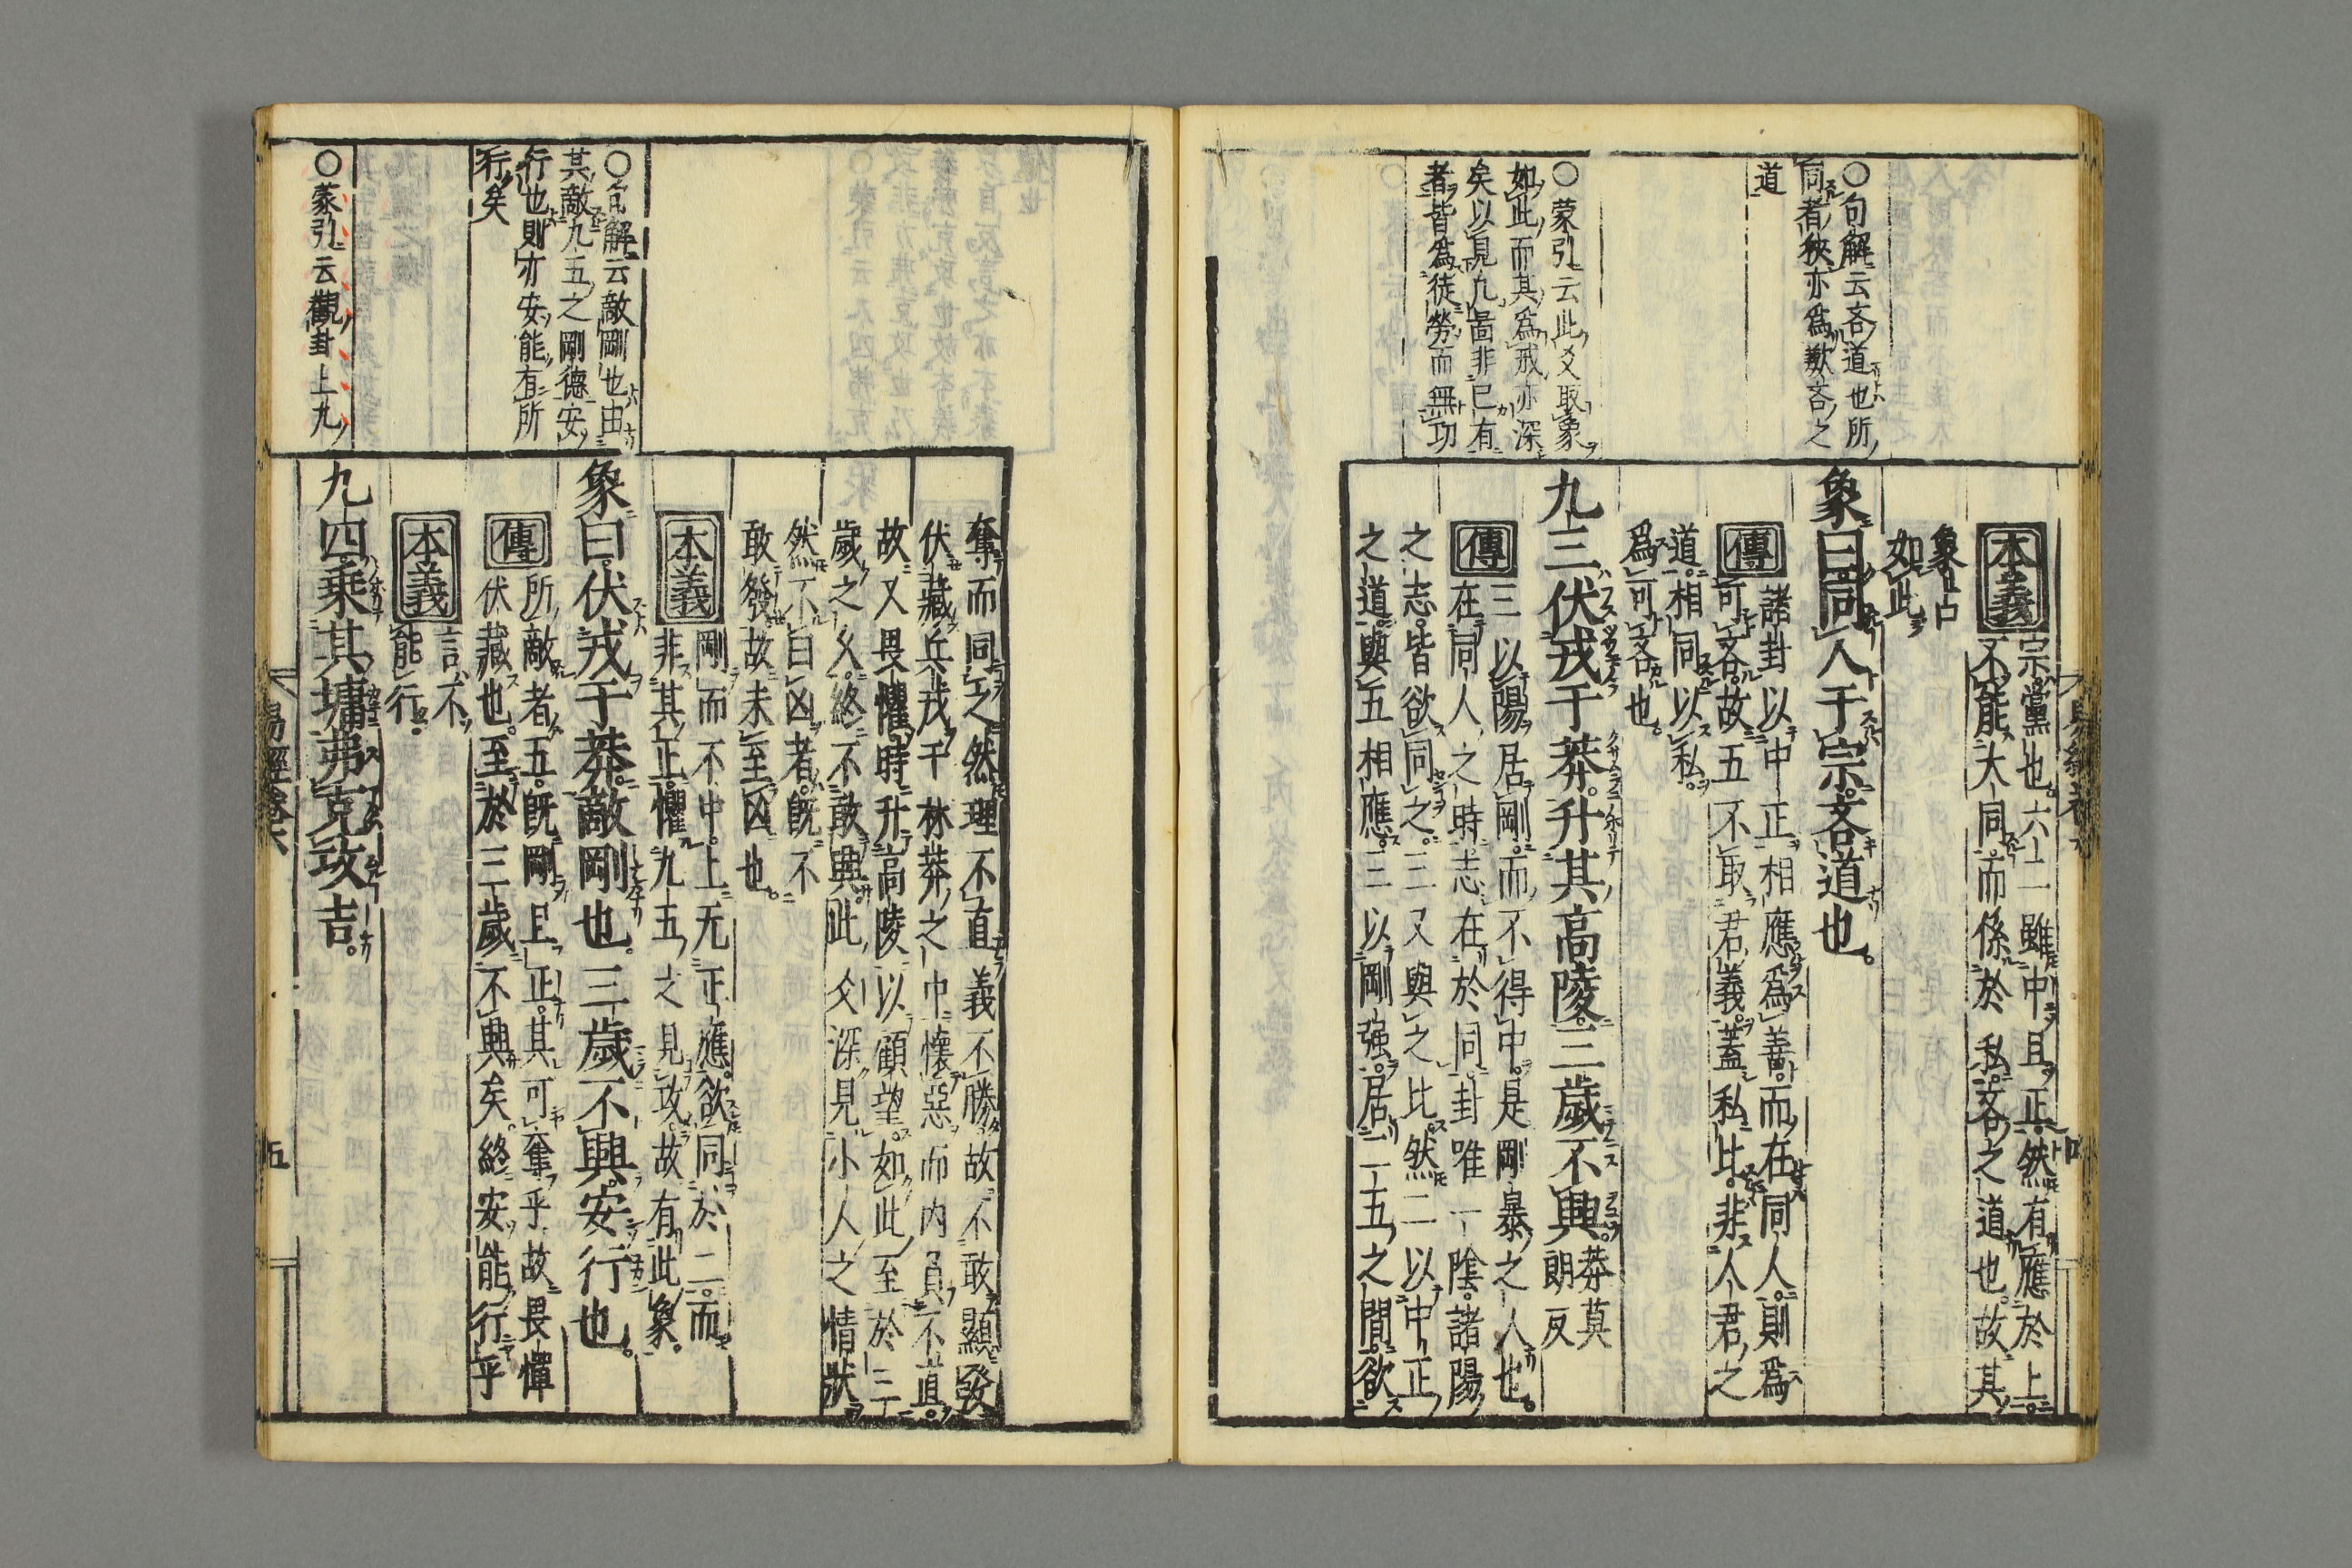 ○句解云吝道也所
同者狹亦爲歎吝之
道
○蒙引云此爻取象
如此而其爲戒亦深
矣以見凡啚非己有
者皆爲徒勞而無功
本義
宗黨也六二雖中且正然有應於上
不能大同而係於私吝之道也故其
象占
如此
象曰同人于宗吝道也
傳
諸卦以中正相應爲善而在同人則爲
可吝故五不取君義蓋私比非人君之
道相同以私
爲可吝也
九三伏戎于莽升其高陵三歲不興
莽莫
朗反
傳
三以陽居剛而不得中是剛暴之人也
在同人之時志在於同卦唯一陰諸陽
之志皆欲同之三又與之比然二以中正
之道與五相應三以剛强居二五之間欲
○句解云敵剛也由
其敵九五之剛德安
行也則亦安能有所
行矣
○蒙引云觀卦上九
奪而同之然理不直義不勝故不敢顯發
伏藏兵戎于林莽之中懷惡而内負不直
故又畏懼時升高陵以顧望如此至於三
歲之久終不敢興此爻深見小人之情狀
然不曰凶者既不
敢發故未至凶也
本義
剛而不中上无正應欲同於二而
非其正懼九五之見攻故有此象
象曰伏戎于莽敵剛也三歲不興安行也
傳
所敵者五既剛且正其可奪乎故畏憚
伏藏也至於三歲不興矣終安能行乎
本義
言不
能行
九四乘其墉弗克攻吉
易經卷六
五